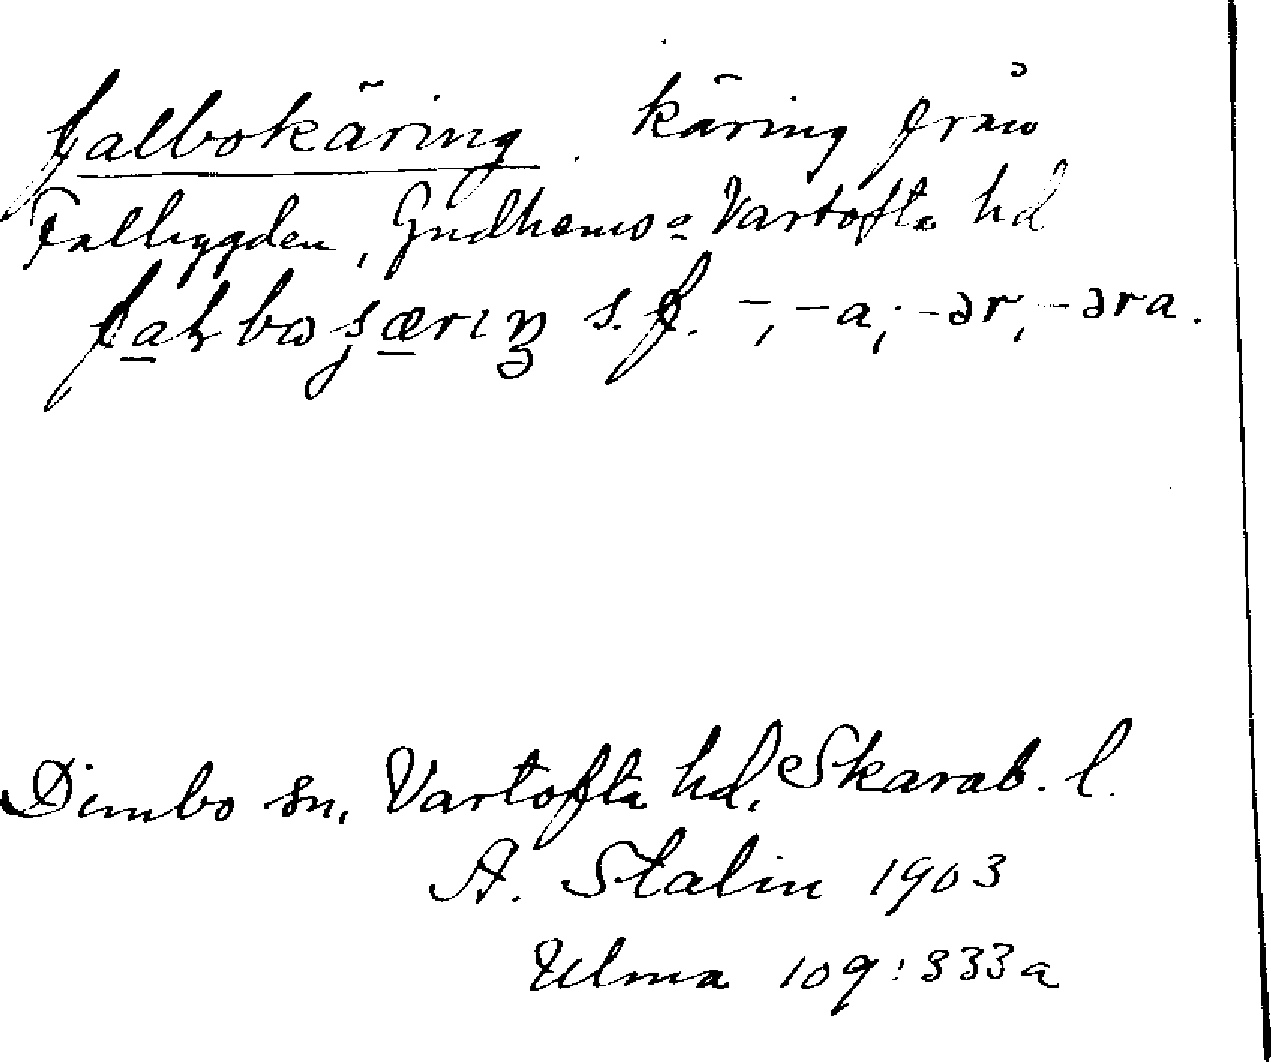 falbokäring. käring från
Falbygden, Gudhems o Vartofta hd
faɫboʂærıŋ s. f. -, -a; -ər, -əra.
Dimbo sn, Vartofta hd, Skarab. l.
A. Stalin 1903
Ulma 109:333a